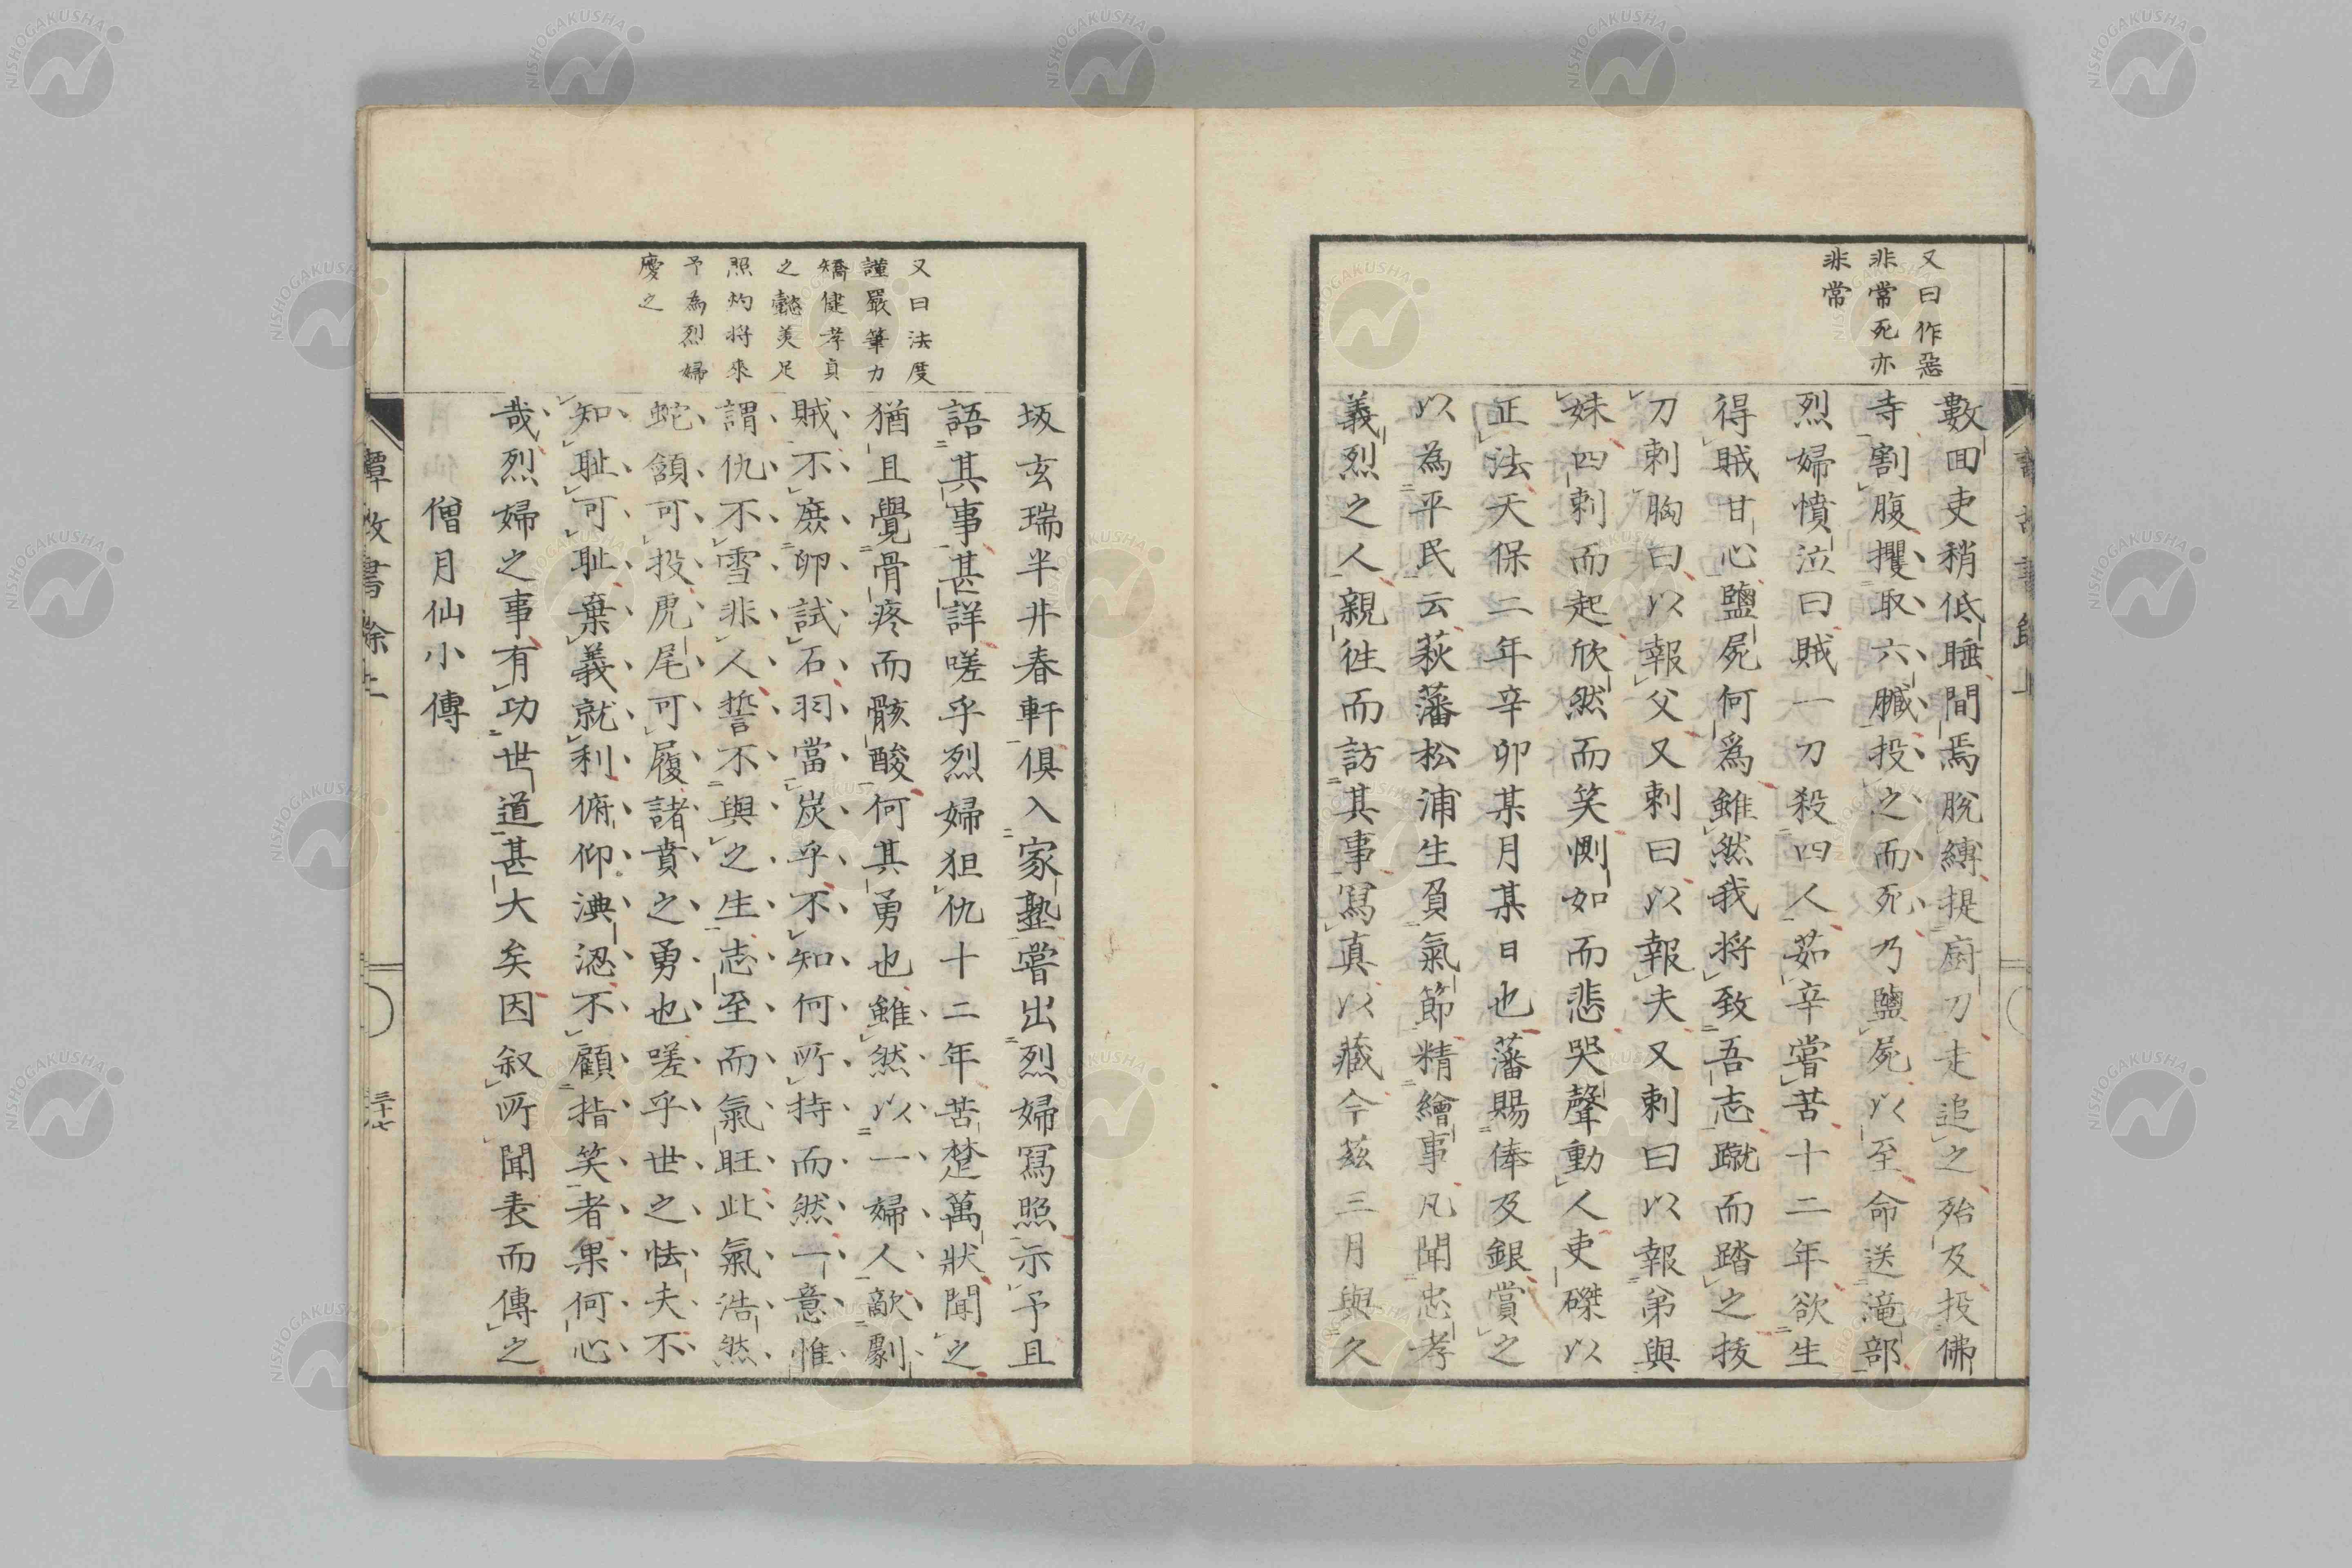 又曰作惡
非常死亦
非常
數囬吏稍低睡間焉脫縛提廚刀走追之殆及投佛
寺割腹攫取六臓投之而死乃鹽屍以至命送滝部
烈婦憤泣曰賊一刀殺四人茹辛嘗苦十二年欲生
得賊甘心鹽屍何爲雖然我将致吾志蹴而踏之拔
刀刺胸曰以報父又刺曰以報夫又刺曰以報弟與
妹四刺而起欣然而笑惻如而悲哭聲動人吏磔以
正法天保二年辛卯某月某日也藩賜俸及銀賞之
以為平民云萩藩松浦生負氣節精繪事凡聞忠孝
義烈之人親徃而訪其事寫真以藏今茲三月與久
又曰法度
謹嚴筆力
矯健孝貞
之懿美足
照灼将來
予為烈婦
慶之
坂玄瑞半井春軒俱入家塾嘗出烈婦寫照示予且
語其事甚詳嗟乎烈婦狙仇十二年苦楚萬狀聞之
猶且覺骨疼而骸酸何其勇也雖然以一婦人敵劇
賊不庶卵試石羽當炭乎不知何所持而然一意惟
謂仇不雪非人誓不與之生志至而氣旺此氣浩然
蛇頷可投虎尾可履諸賁之勇也嗟乎世之怯夫不
知耻可耻棄義就利俯仰淟涊不顧指笑者果何心
哉烈婦之事有功世道甚大矣因叙所聞表而傳之
僧月仙小傳
三十七